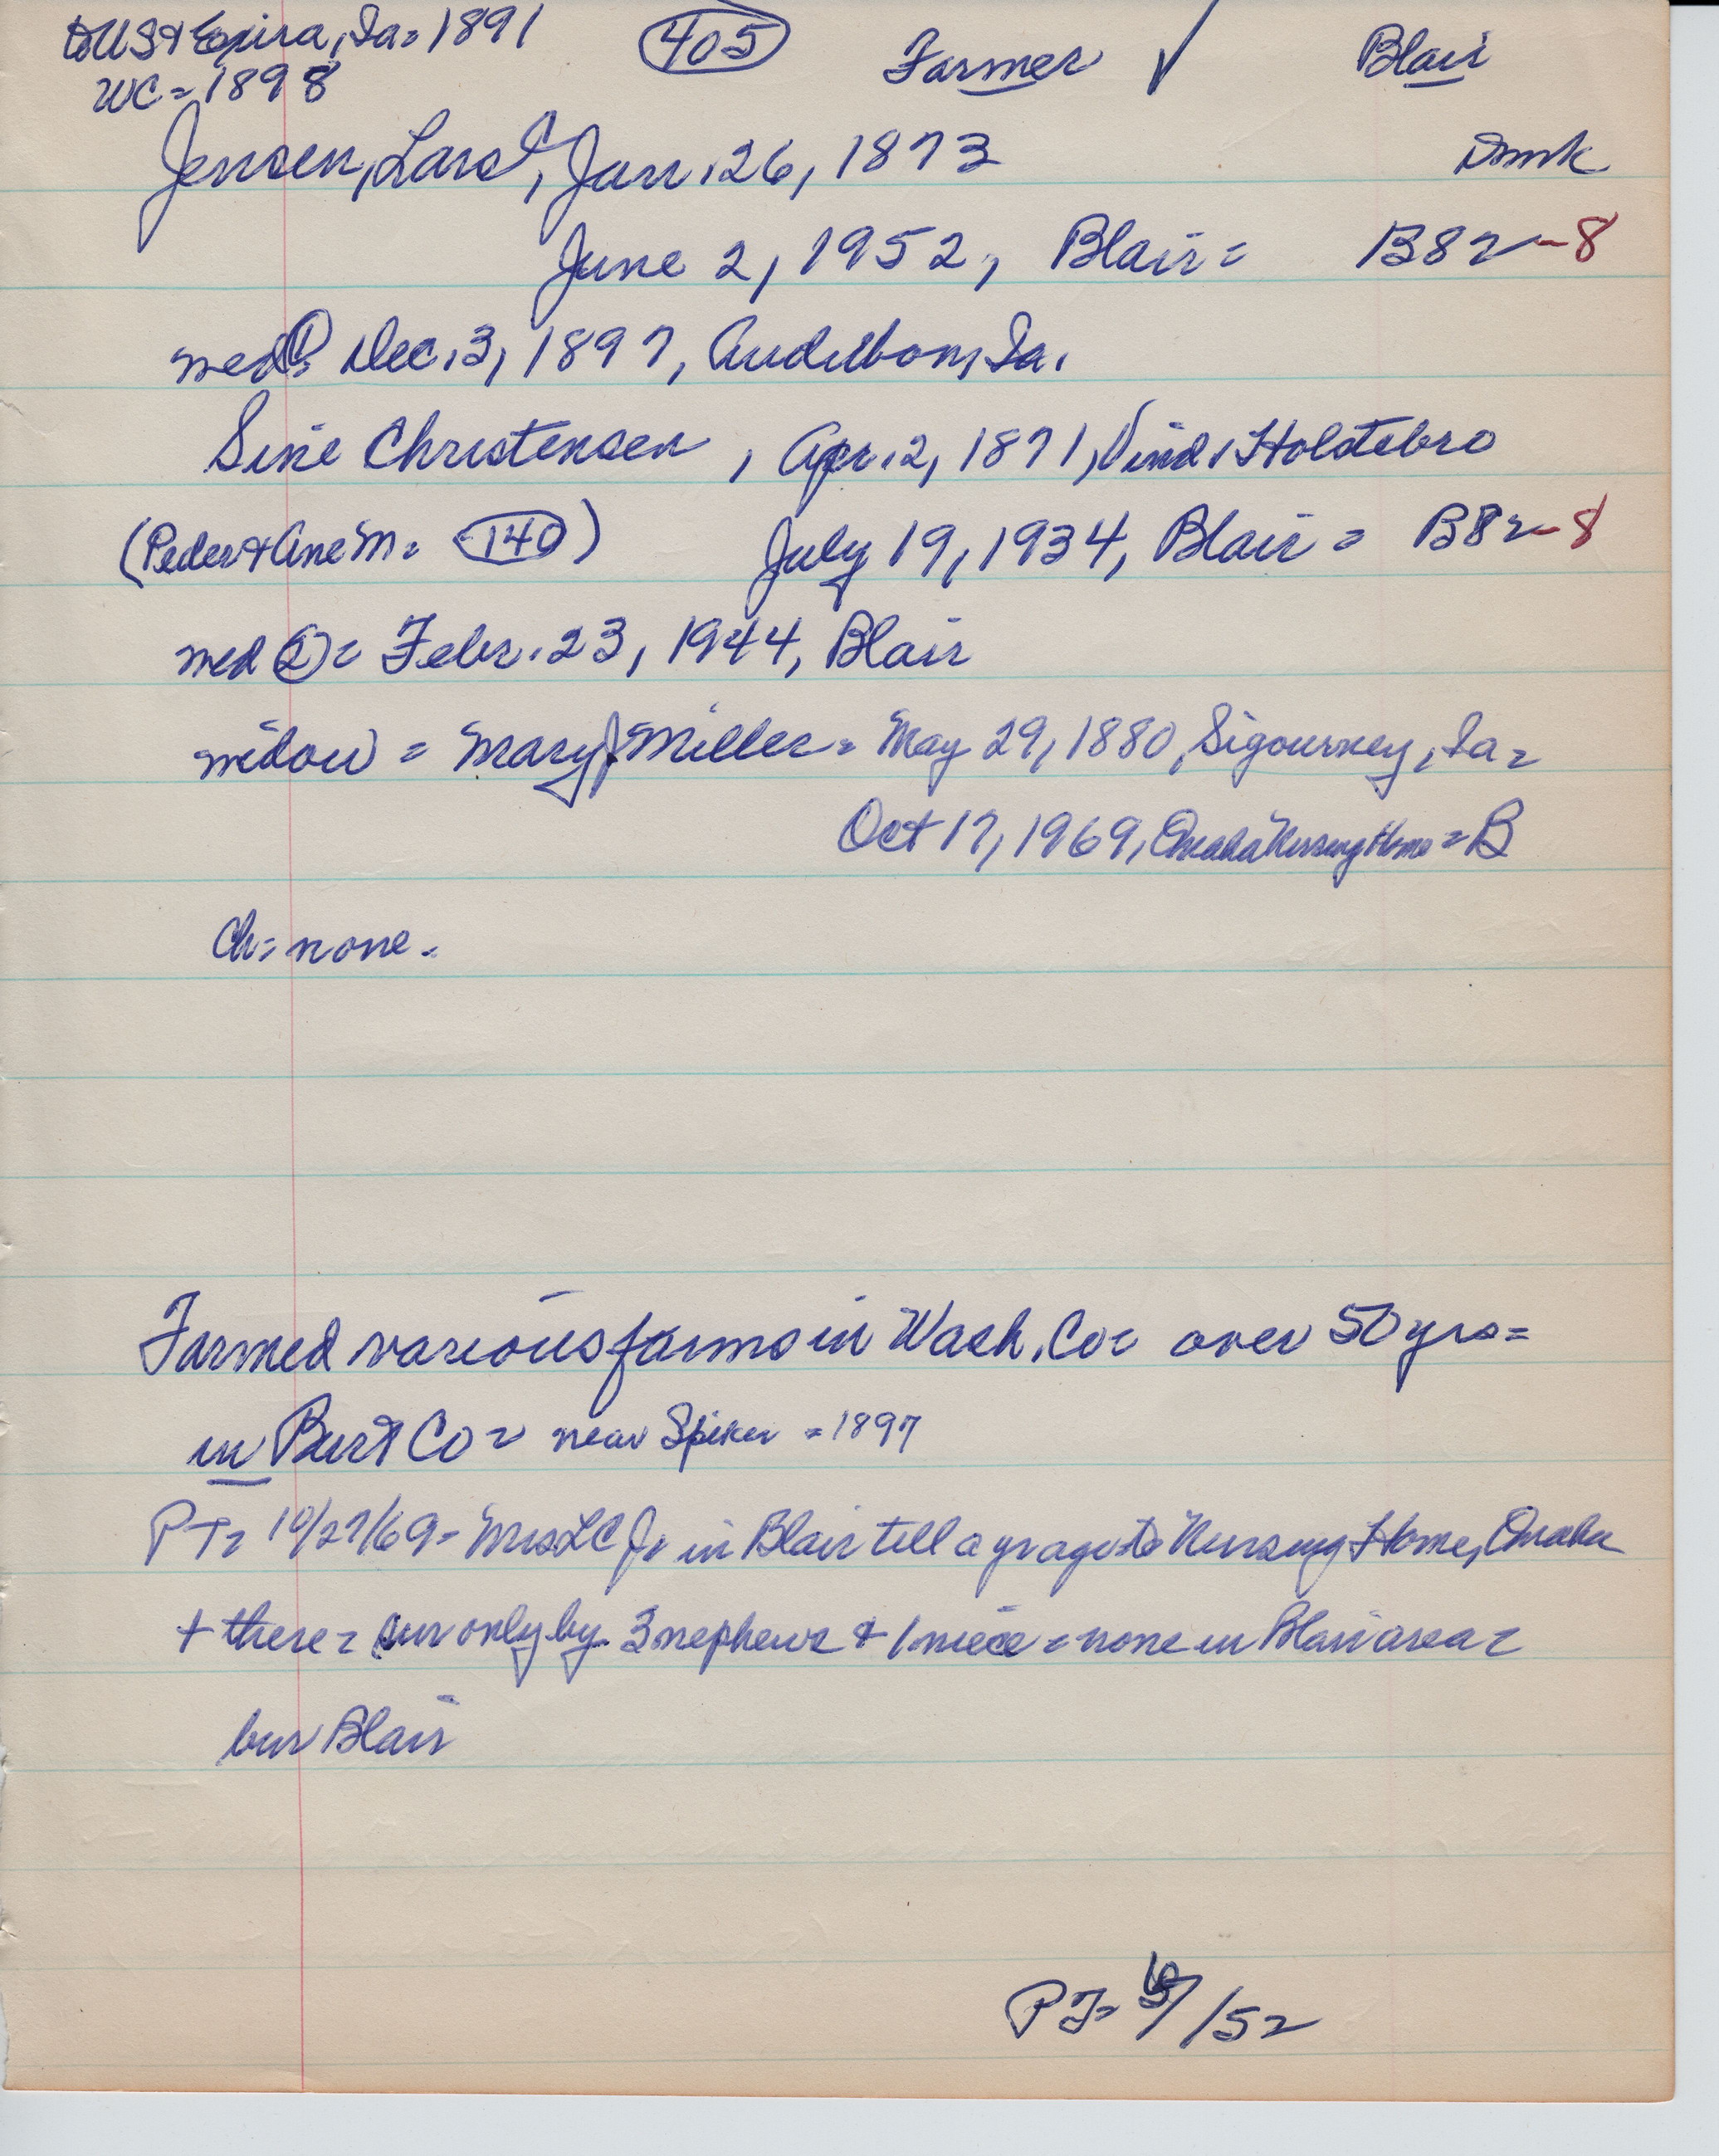 to US & Exira, Ia = 1891 (405) Farmer ✓ Blair
WC = 1898
Jensen, Lars C, Jan. 26, 1873 Dmk
June 2, 1952, Blair = B82-8
med ① = Dec. 3, 1897, Audubon, Ia.
Sine Christensen, Apr. 2, 1871, Vind, Holstebro
(Peder & Ane M = (140)) July 19, 1934, Blair = B82-8
med ② = Febr. 23, 1944, Blair
widow = Mary J Miller = May 29, 1880, Sigourney, Ia =
Oct 17, 1969, Omaha Nursing Home = B
Ch = none =
Farmed various farms in Wash. Co = over 50 yrs =
in Burt Co = near Spiker = 1897
PT = 10/27/69 = Mrs LC J = in Blair till a yr ago to Nursing Home, Omaha
+ there = sur only by 3 nephews + 1 niece = none in Blair area =
bur Blair
PT = /52